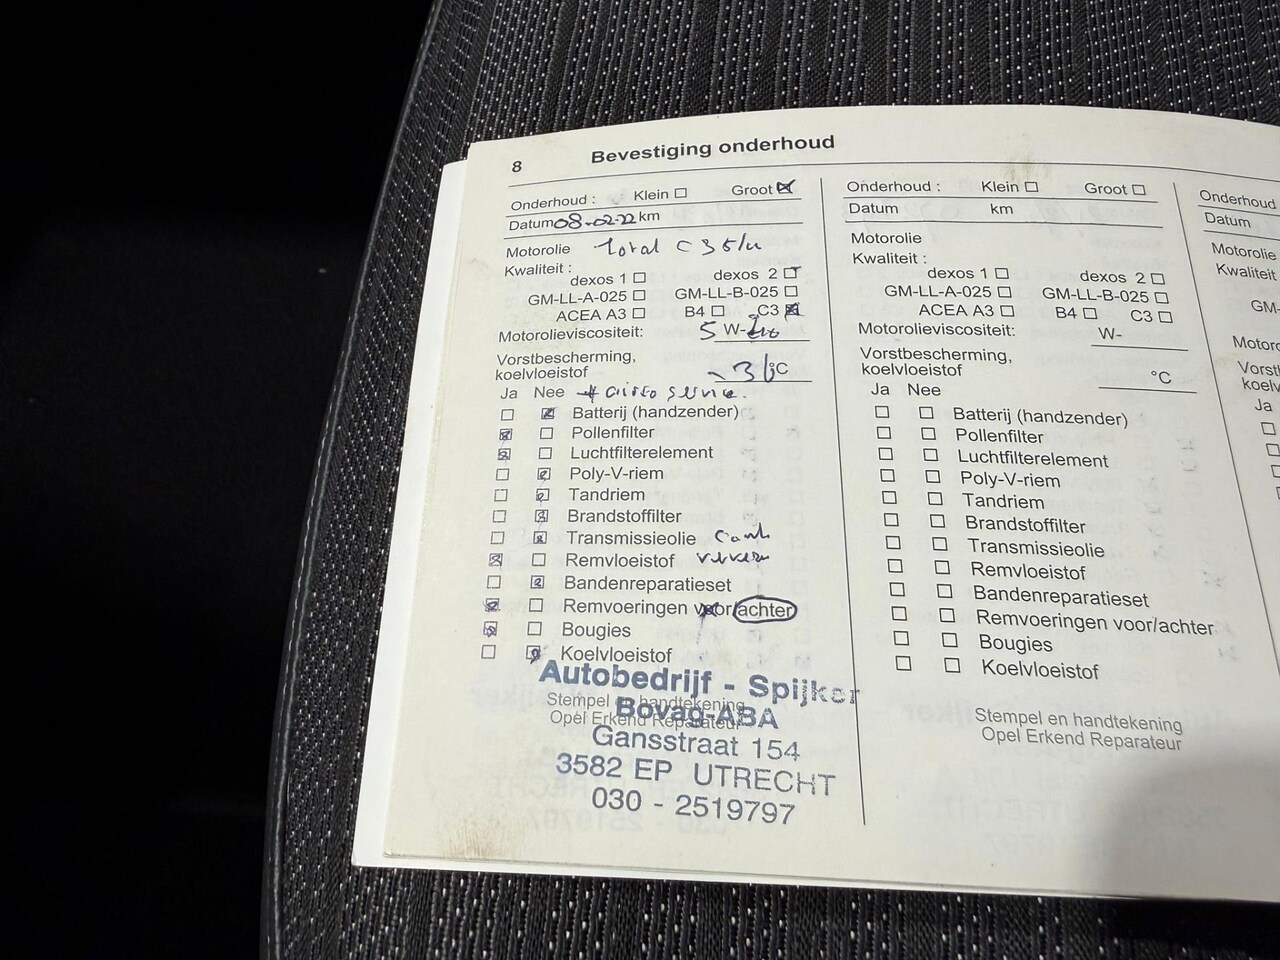 8 Bevestiging onderhoud
Onderhoud : Klein Groot
Datum 08-02-22 km
Motorolie Total C3
Kwaliteit :
dexos 1 dexos 2
GM-LL-A-025 GM-LL-B-025
ACEA A3 B4 C3
Motorolieviscositeit: 5 W-
Vorstbescherming,
koelvloeistof -36 °C
Ja Nee + airco
Batterij (handzender)
Pollenfilter
Luchtfilterelement
Poly-V-riem
Tandriem
Brandstoffilter
Transmissieolie
Remvloeistof
Bandenreparatieset
Remvoeringen voor/achter
Bougies
Koelvloeistof
Stempel en handtekening
Opel Erkend Reparateur
Autobedrijf - Spijker
Bovag-ABA
Gansstraat 154
3582 EP UTRECHT
030 - 2519797
Onderhoud : Klein Groot
Datum km
Motorolie
Kwaliteit :
dexos 1 dexos 2
GM-LL-A-025 GM-LL-B-025
ACEA A3 B4 C3
Motorolieviscositeit: W-
Vorstbescherming,
koelvloeistof °C
Ja Nee
Batterij (handzender)
Pollenfilter
Luchtfilterelement
Poly-V-riem
Tandriem
Brandstoffilter
Transmissieolie
Remvloeistof
Bandenreparatieset
Remvoeringen voor/achter
Bougies
Koelvloeistof
Stempel en handtekening
Opel Erkend Reparateur
Onderhoud
Datum
Motorolie
Kwaliteit
GM-
Ja